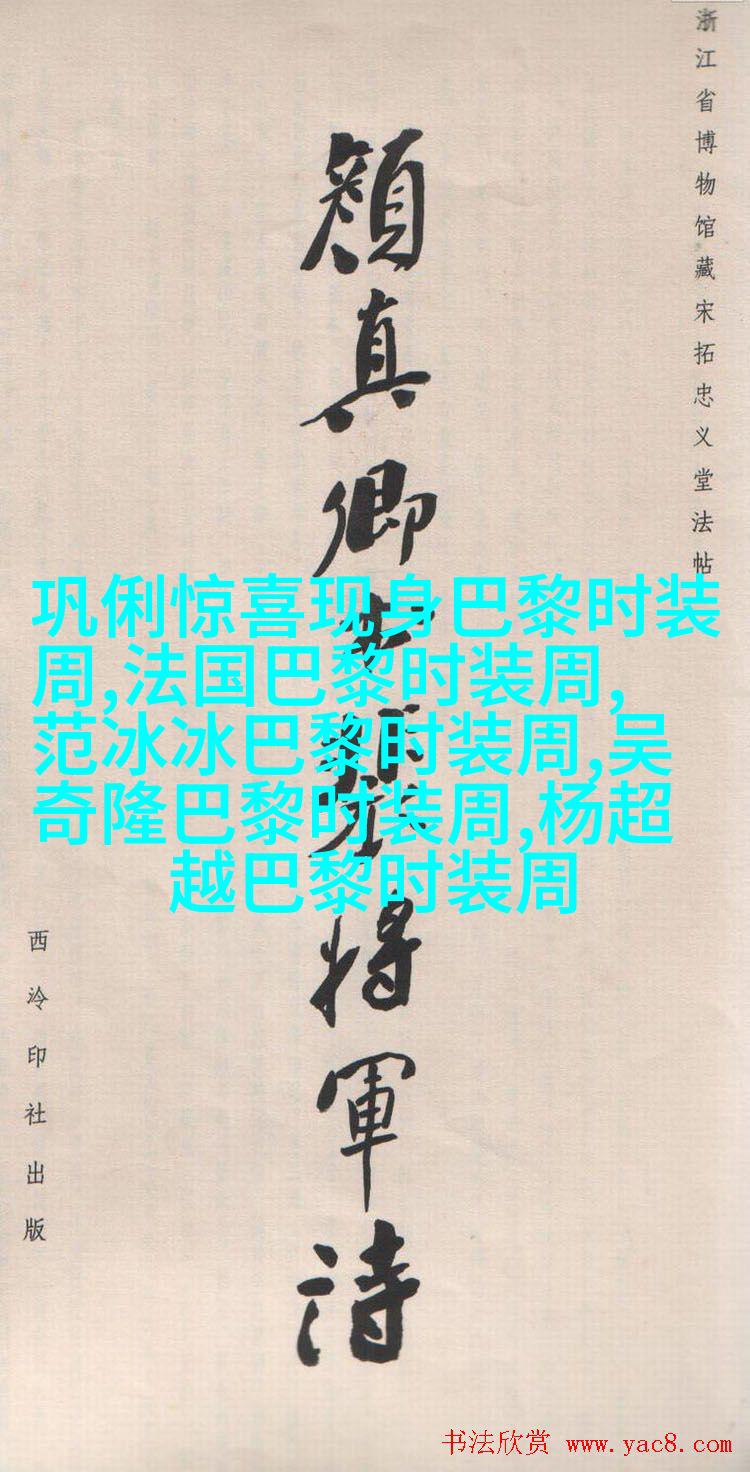 浙江省博物馆藏宋拓忠义堂法帖
顏真卿将軍詩
西泠印社出版
巩俐惊喜现身巴黎时装
周,法国巴黎时装周,
范冰冰巴黎时装周,吴
奇隆巴黎时装周,杨超
越巴黎时装周
书法欣赏 www.yac8.com